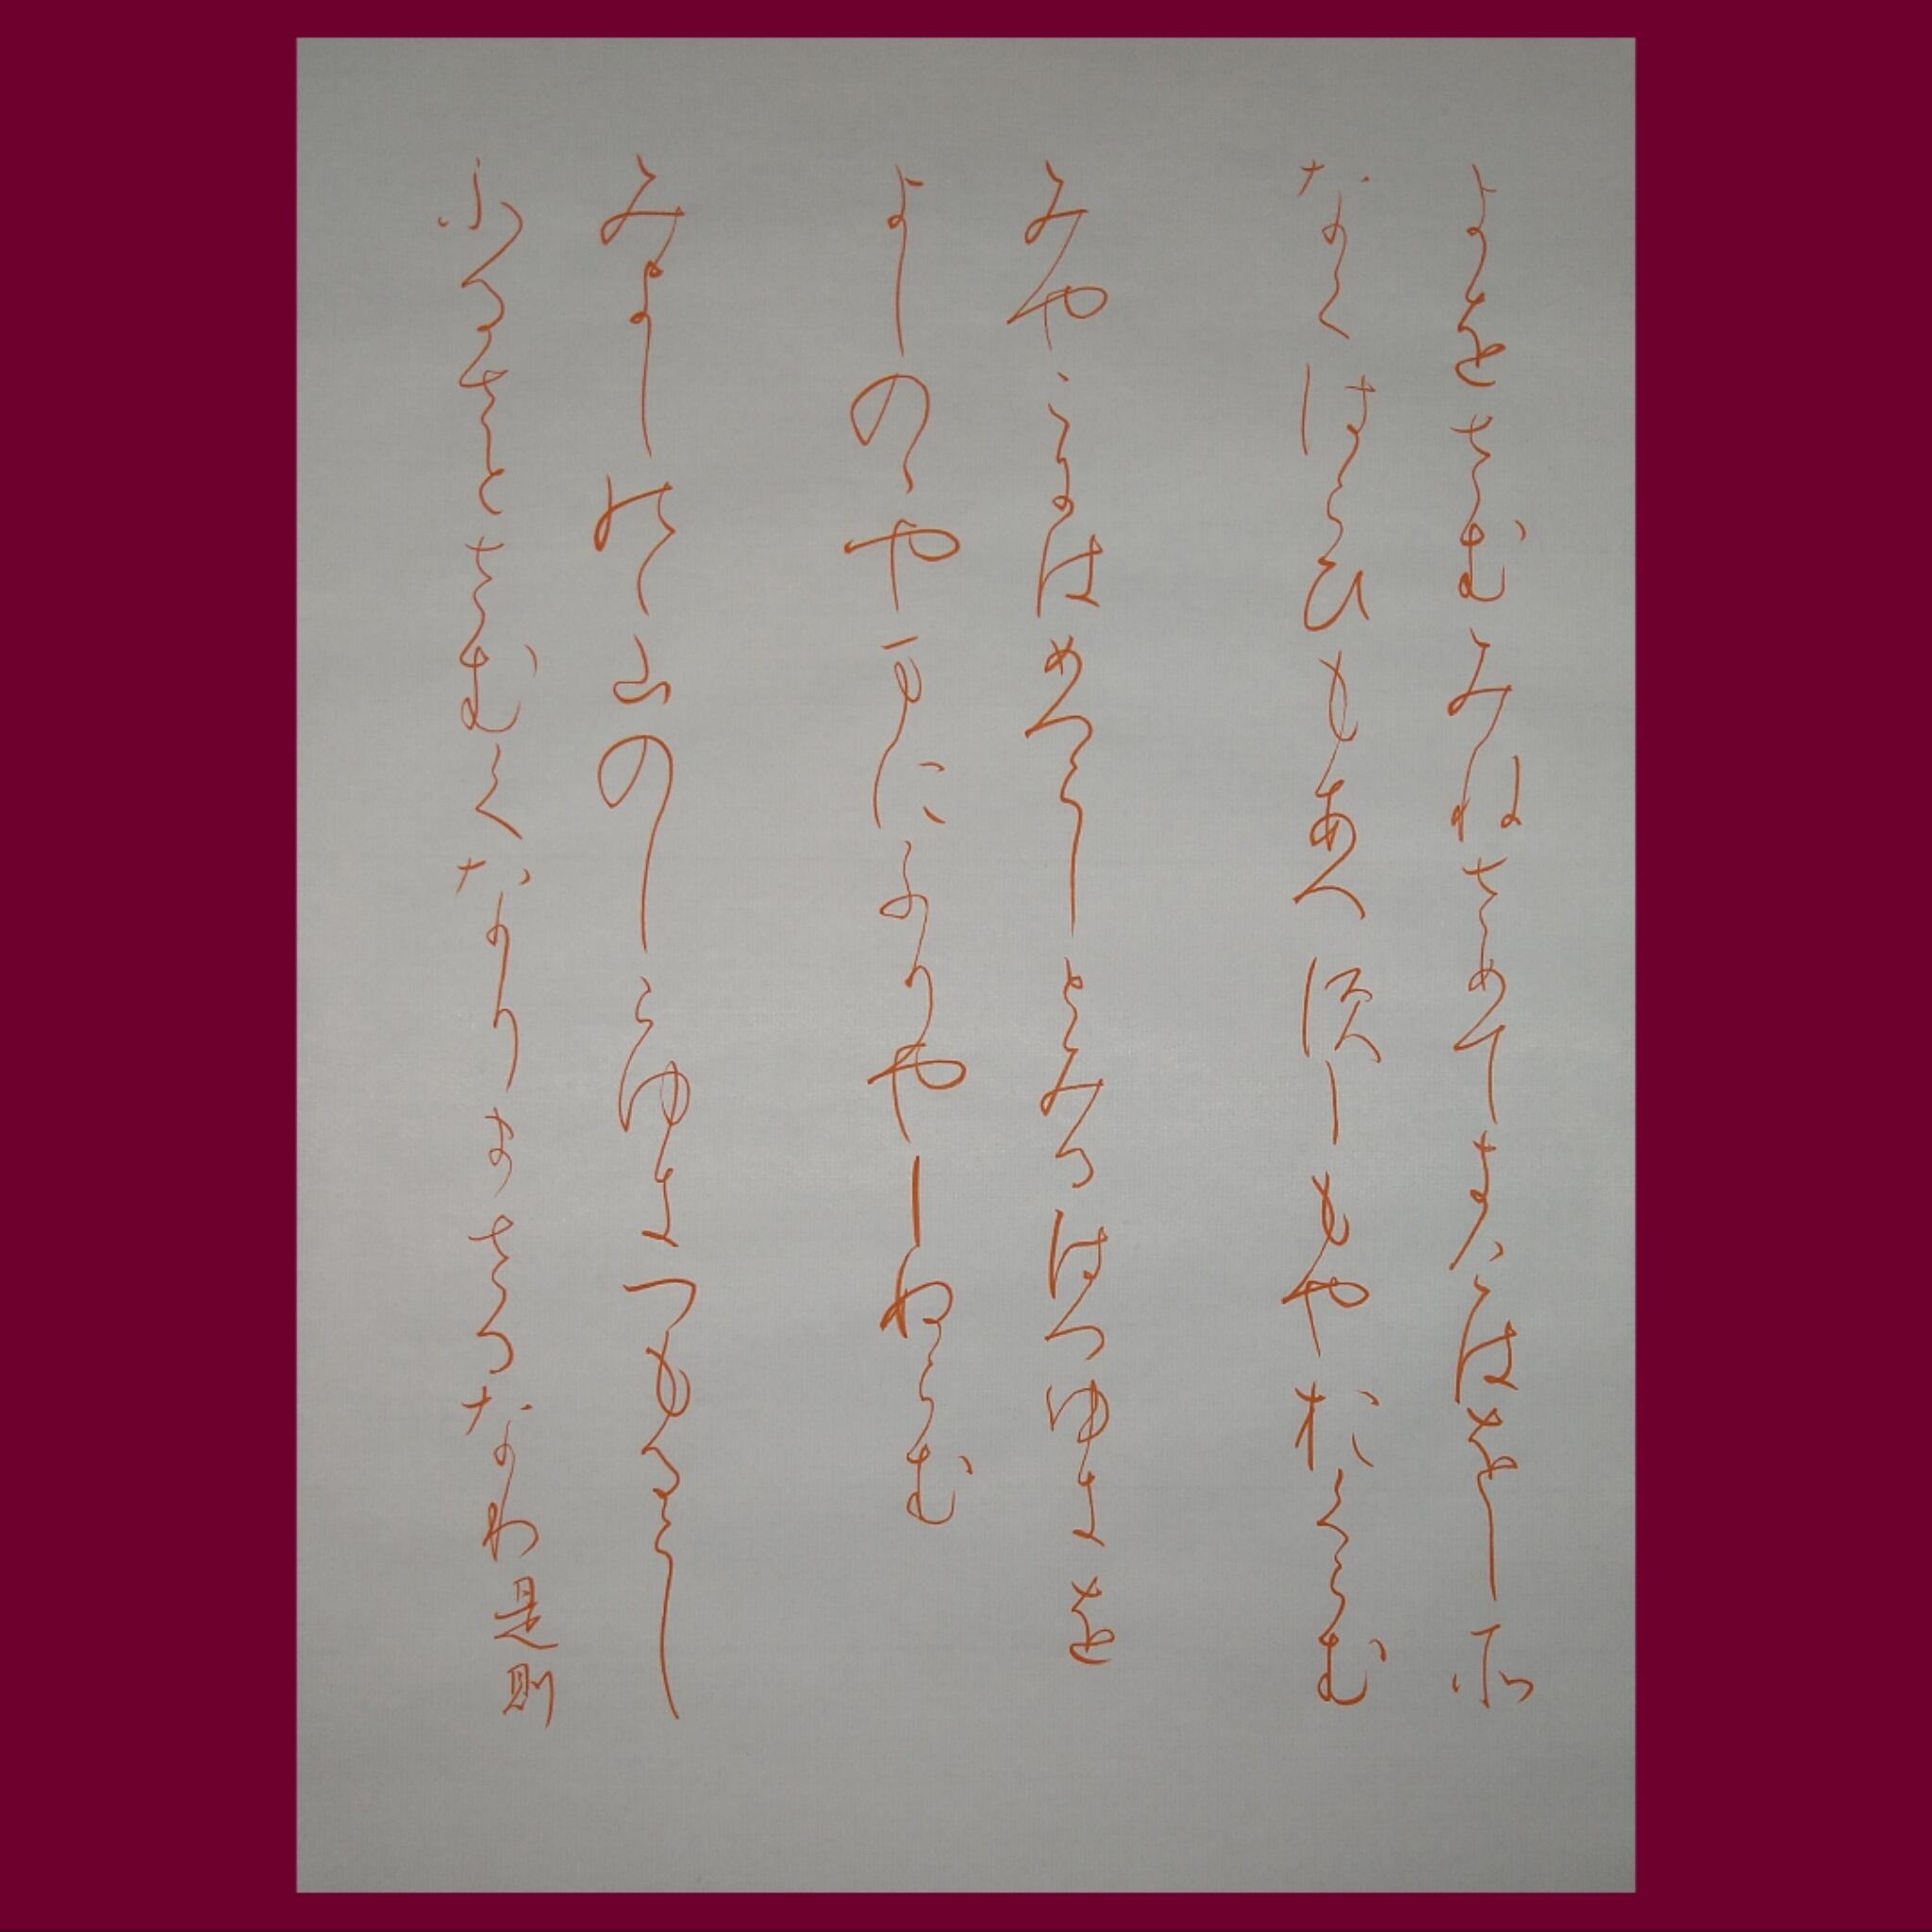 よをさむみねさめてきけはをしそ
なくはらひもあへすしもやおくらむ
みやこにはめつらしとみるはつゆきを
よしのゝやまにふりやしぬらむ
みよしのゝ山のしらゆきつもるらし
ふるさとさむくなりまさるなり是則